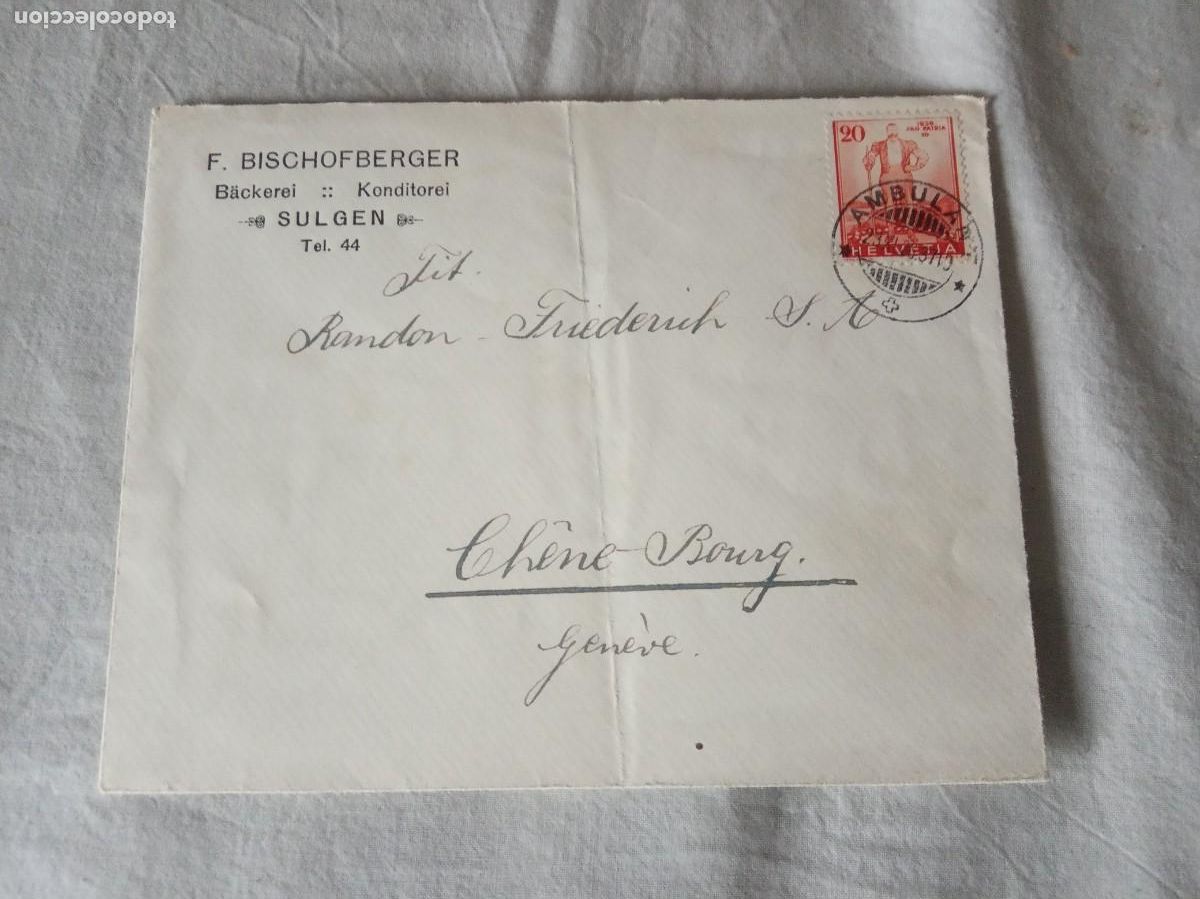 todocoleccion
F. BISCHOFBERGER
Bäckerei :: Konditorei
SULGEN
Tel. 44
20
PRO PATRIA
HELVETIA
AMBULANT
Tit.
Randon - Friederich S. A
Chêne-Bourg.
Genève.